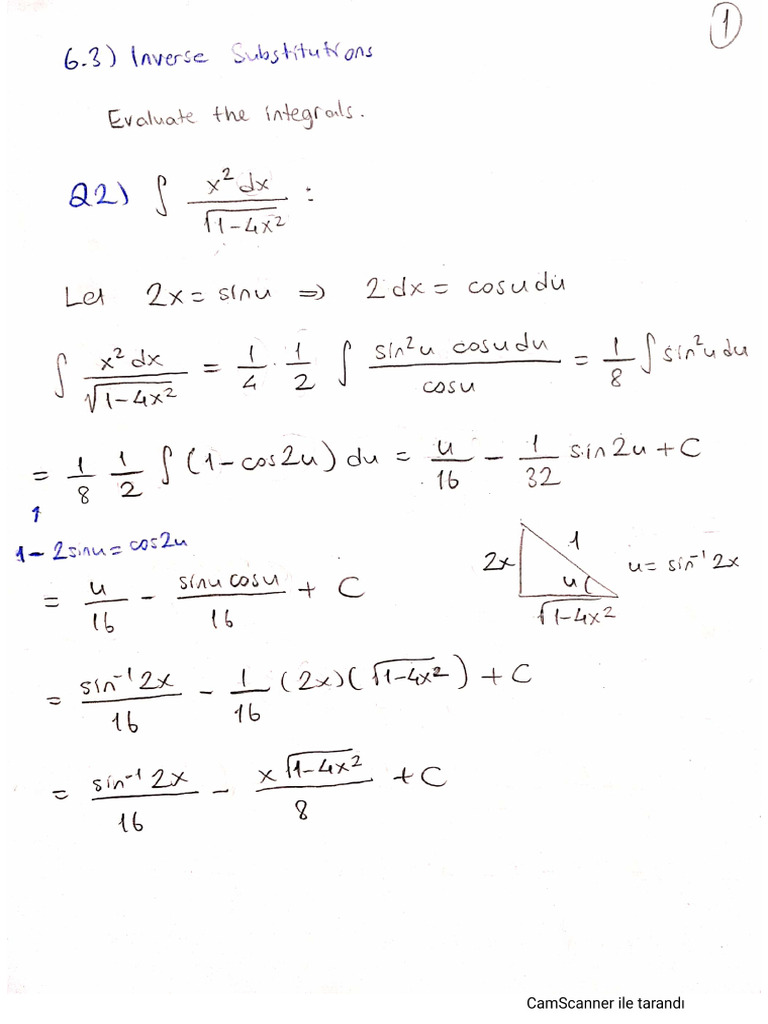 1
6.3) Inverse Substitutions
Evaluate the integrals.
Q2) ∫ x² dx / √(1-4x²) :
Let 2x = sinu ⇒ 2dx = cosudu
∫ x² dx / √(1-4x²) = 1/4 · 1/2 ∫ sin²u cosudu / cosu = 1/8 ∫ sin²u du
= 1/8 1/2 ∫ (1-cos2u) du = u/16 - 1/32 sin2u + C
↑
1-2sinu = cos2u
= u/16 - sinu cosu / 16 + C
2x 1 u √(1-4x²) u = sin⁻¹ 2x
= sin⁻¹2x / 16 - 1/16 (2x)(√(1-4x²)) + C
= sin⁻¹ 2x / 16 - x√(1-4x²) / 8 + C
CamScanner ile tarandı